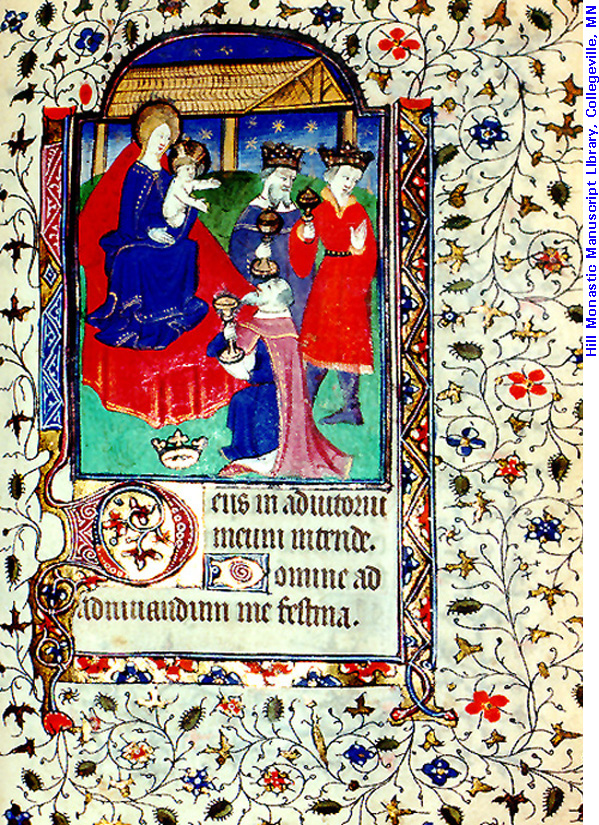 Deus in adiutoriu
meum intende.
Domine ad
adiuuandum me festina.
Hill Monastic Manuscript Library, Collegeville, MN